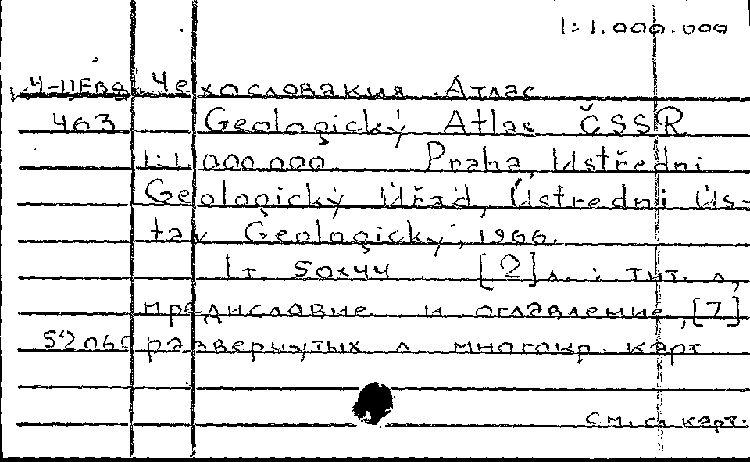 1:1.000.000
Чехословакия. Атлас
463 Geologický Atlas ČSSR
1:1.000.000 Praha, Ustředni
Geologický Uřad, Ústredni Ús-
tav Geologický, 1966.
1т. 50x44 [2] л.: тит. л,
предисловие и оглавление, [7]
развернутых л. многокр. карт
См. сл карт.